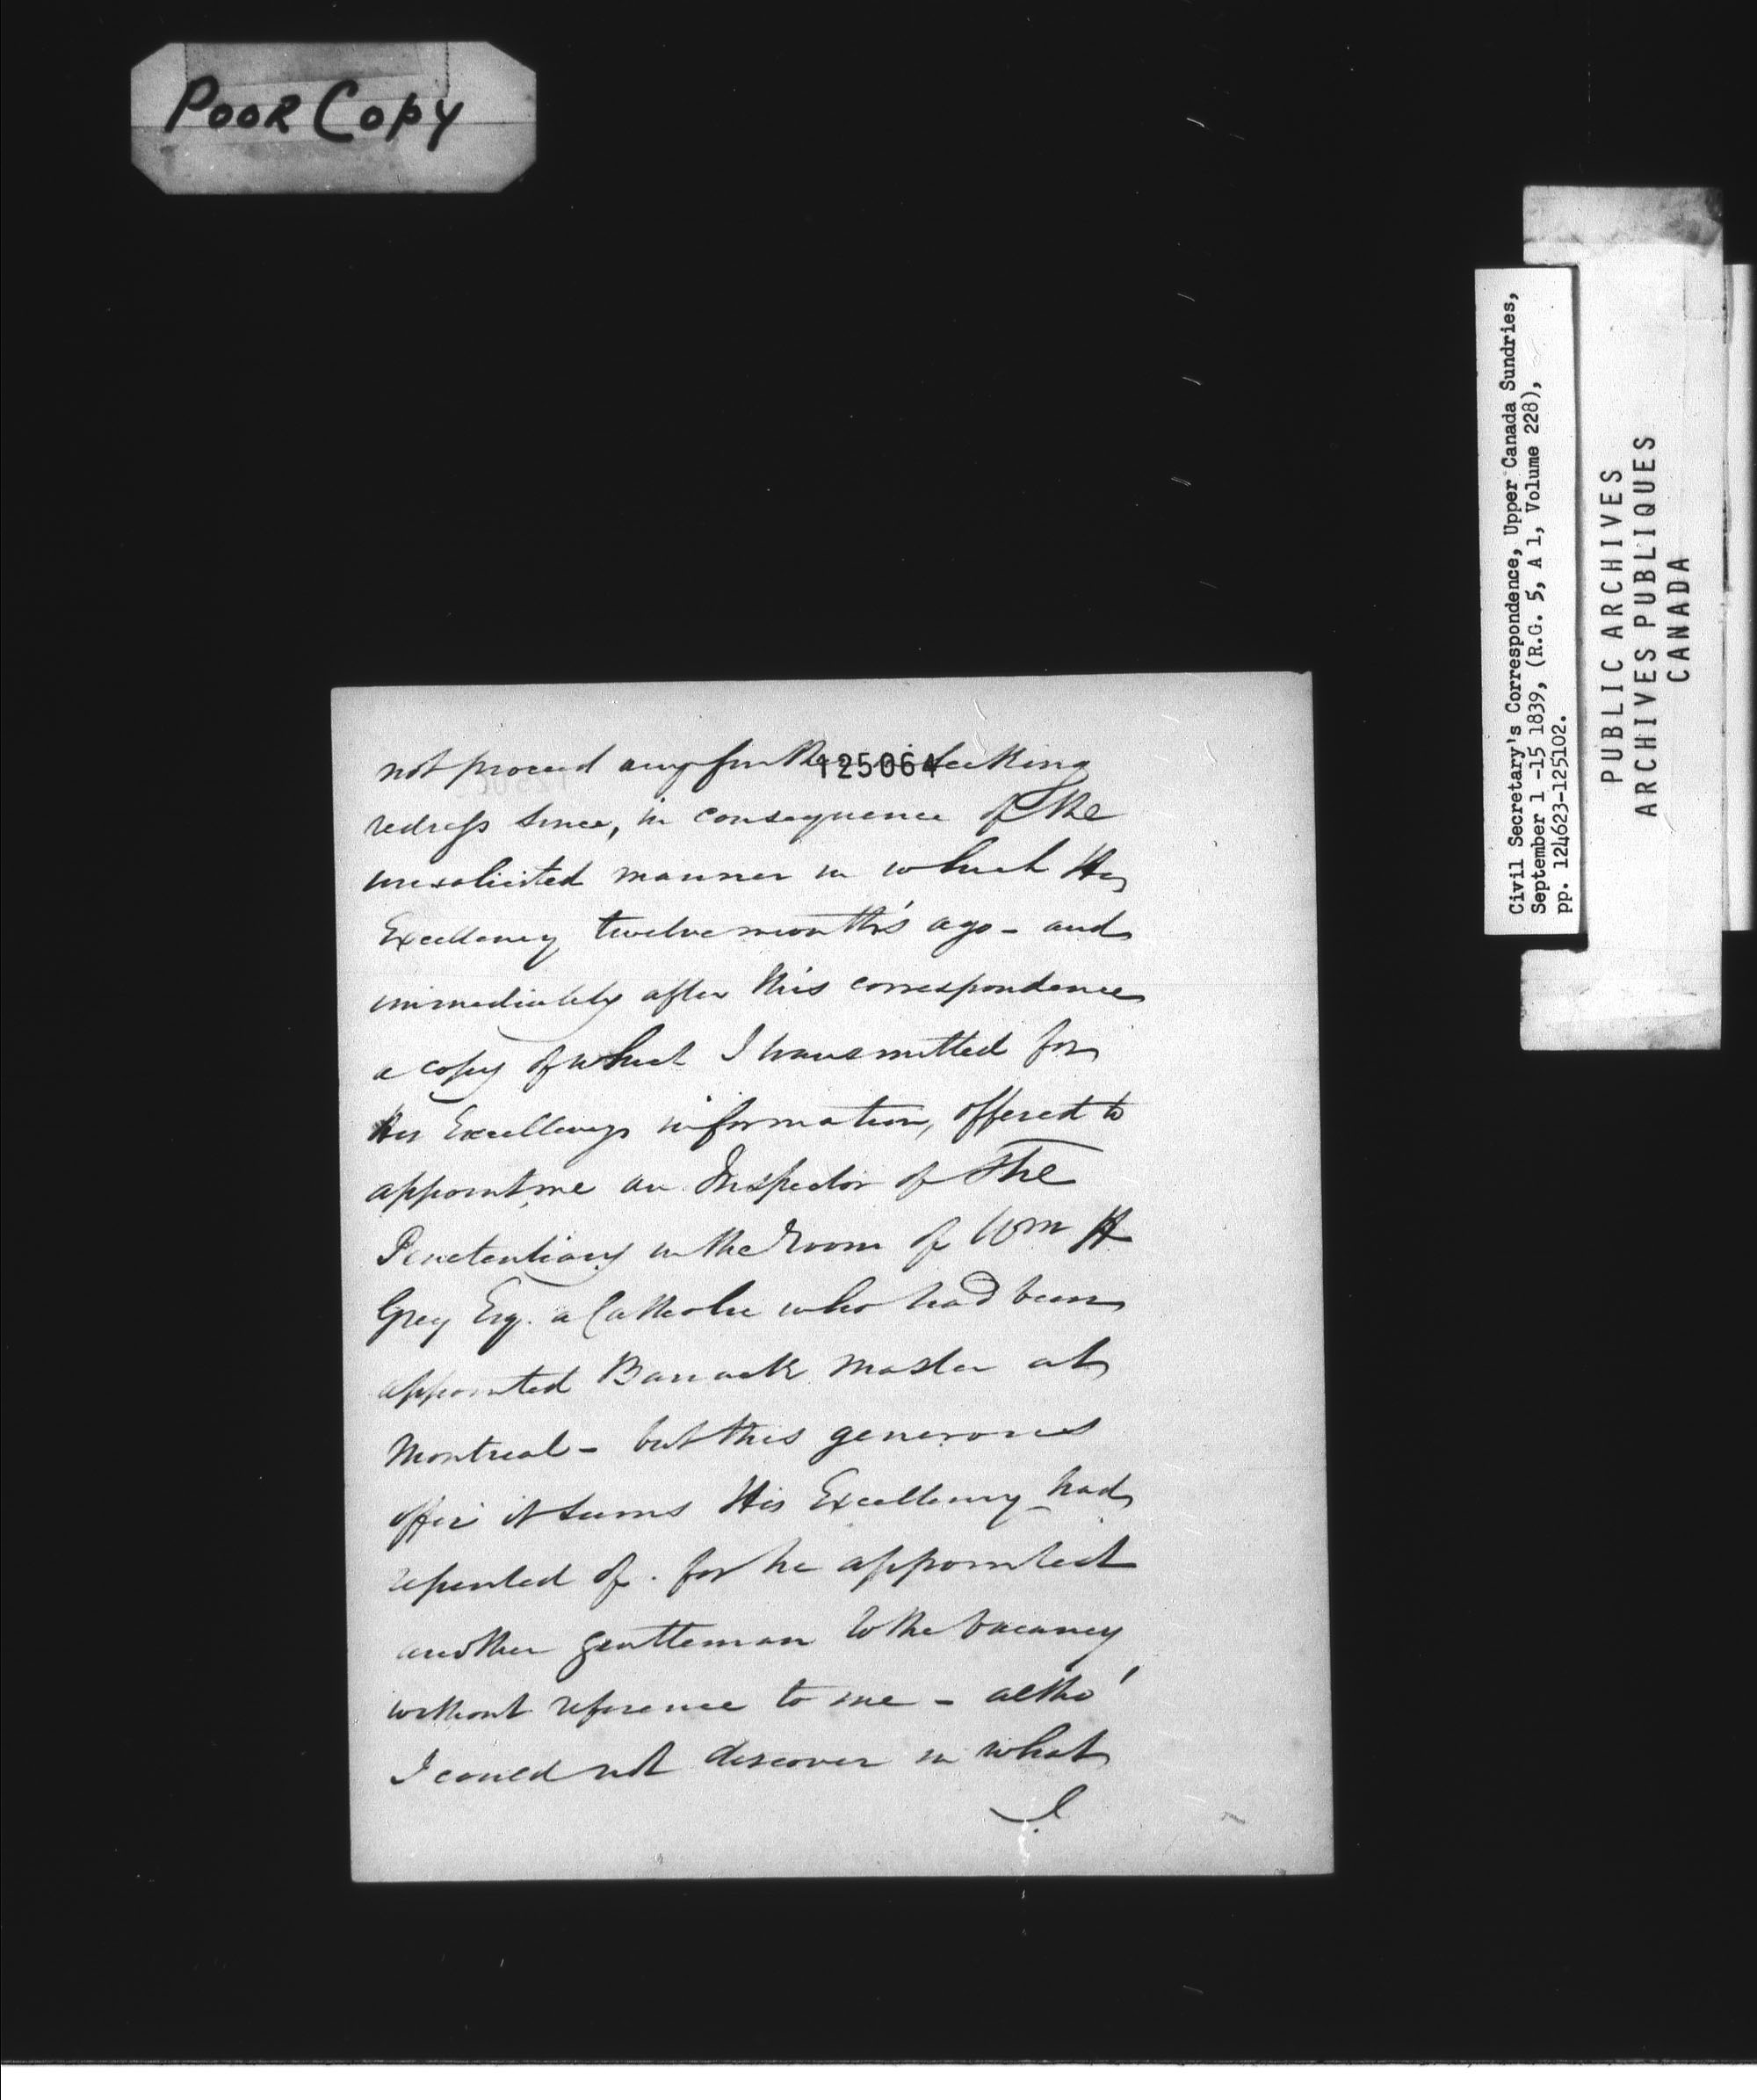 Poor Copy
125064
not proceed any further in seeking
redress since, in consequence of the
unsolicited manner in which His
Excellency twelve month's ago - and
immediately after this correspondence
a copy of which I transmitted for
His Excellency's information, offered to
appoint me an Inspector of the
Penetentiary in the room of Wm H
Grey Esq. a Catholic who had been
appointed Barrack Master at
Montreal - but this generous
offer it seems His Excellency had
repented of. for he appointed
another gentleman to the vacancy
without reference to me - altho'
I could not discover in what
I
Civil Secretary's Correspondence, Upper Canada Sundries,
September 1 -15 1839, (R.G. 5, A 1, Volume 228),
pp. 124623-125102.
PUBLIC ARCHIVES
ARCHIVES PUBLIQUES
CANADA